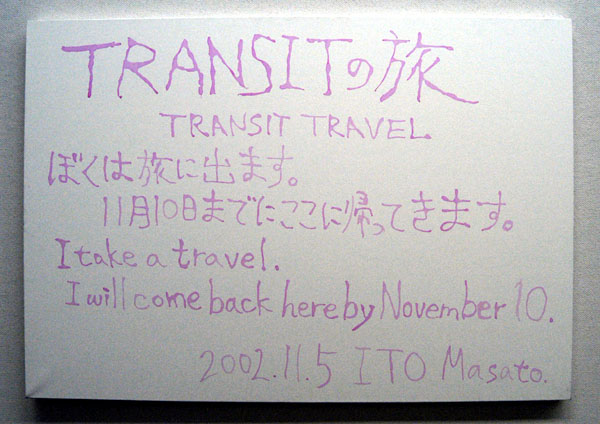 TRANSITの旅
TRANSIT TRAVEL
ぼくは旅に出ます。
11月10日までにここに帰ってきます。
I take a travel.
I will come back here by November 10.
2002.11.5 ITO Masato.